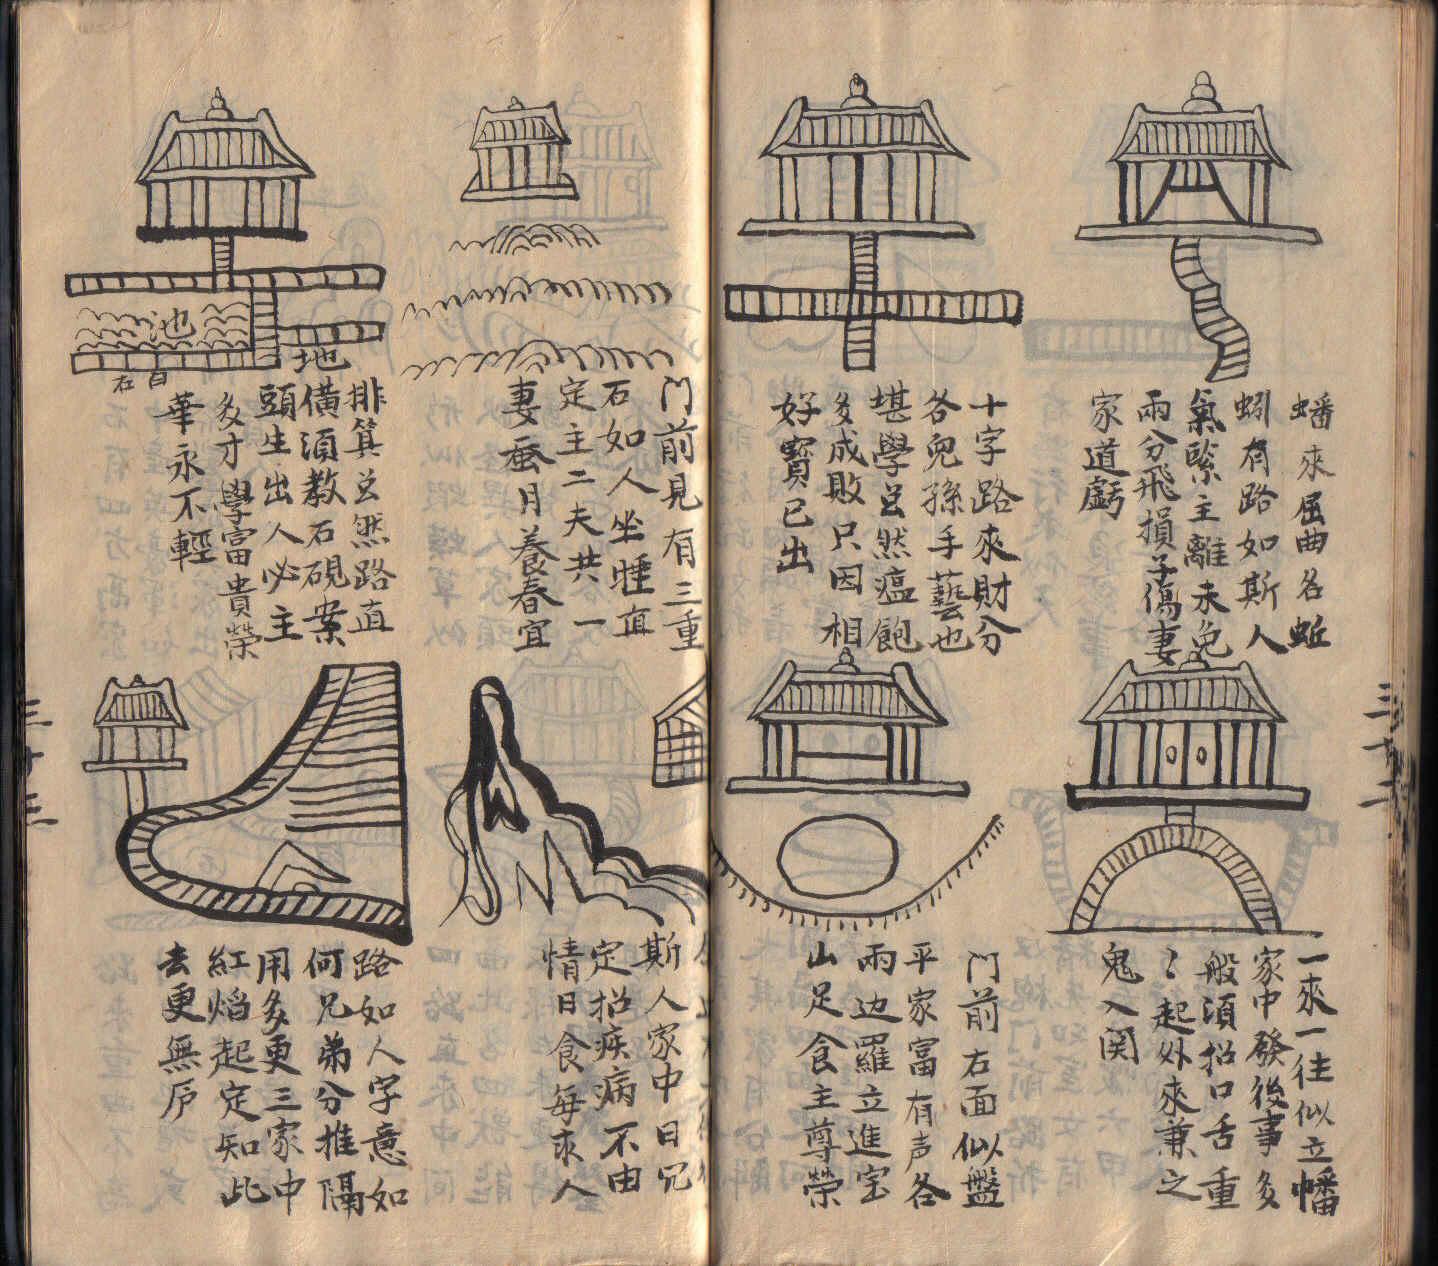 蟠來屈曲名蚯
蚓有路如斯人
氣緊主離未免
兩分飛損子傷妻
家道虧
十字路來財分
各兒孫手藝也
堪學豈然瘟飽
多成敗只因相
好寶已出
一來一往似立幡
家中發後事多
般須招口舌重
〻起外來兼之
鬼入関
門前右面似盤
平家富有声各
兩边羅立進宝
山足食主尊榮
三十二
門前見有三重
石如人坐睡直
定主二夫共一
妻蚕月養春宜
池
地
白
石
排箕豈然路直
橫須教石硯案
頭生出人必主
多才學富貴榮
華永不輕
斯人家中日冗
定招疾病不由
情日食每求人
路如人字意如
何兄弟分推隔
用多更三家中
紅焰起定知此
去更無庐
三十三